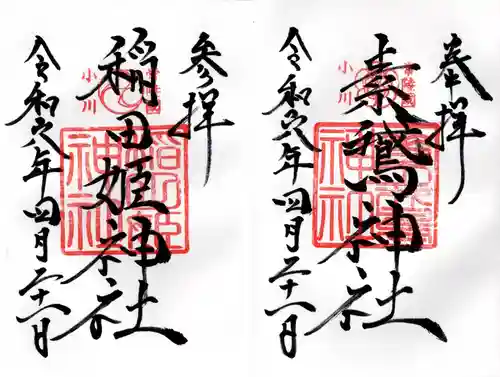 奉拝
常陸國
素鵞神社
小川
令和六年四月二十一日
参拝
常陸國
稲田姫神社
小川
令和六年四月二十一日